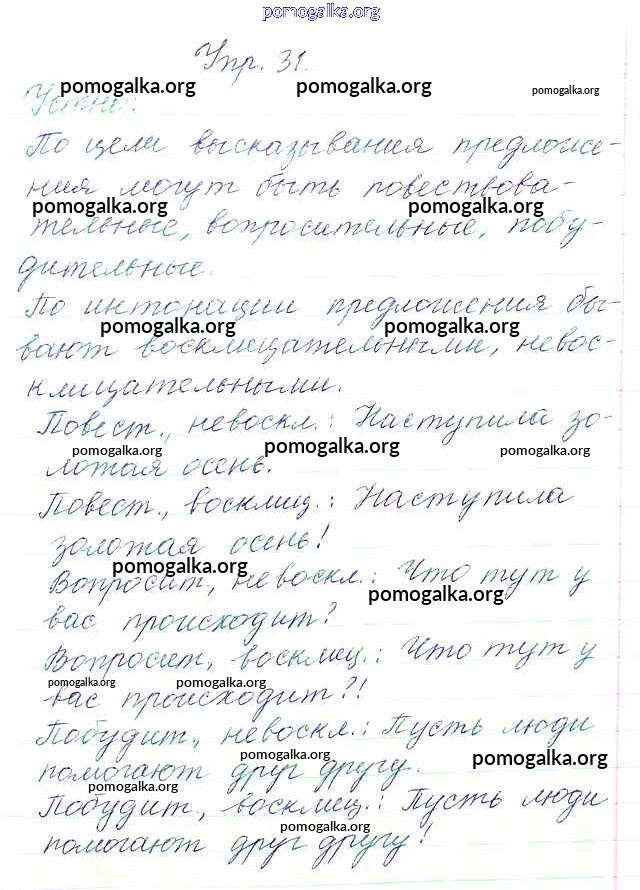 pomogalka.org
Упр. 31.
pomogalka.org pomogalka.org pomogalka.org
Устно:
По цели высказывания предложе-
ния могут быть повествова-
pomogalka.org pomogalka.org
тельные, вопросительные, побу-
дительные.
По интонации предложения бы-
pomogalka.org pomogalka.org
вают восклицательными, невос-
клицательными.
Повест., невоскл.: Наступила зо-
pomogalka.org pomogalka.org pomogalka.org
лотая осень.
Повест., восклиц.: Наступила
золотая осень!
pomogalka.org
Вопросит., невоскл.: Что тут у
pomogalka.org
вас происходит?
Вопросит., восклиц.: Что тут у
pomogalka.org pomogalka.org
вас происходит?!
Побудит., невоскл.: Пусть люди
pomogalka.org pomogalka.org
помогают друг другу.
pomogalka.org
Побудит., восклиц.: Пусть люди
pomogalka.org
помогают друг другу!